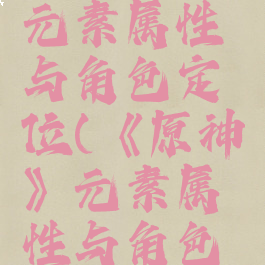 元素属性
与角色定
位(《原神
》元素属
性与角色